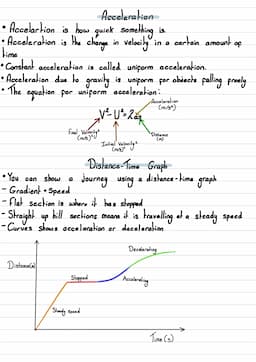 Acceleration
• Accelartion is how quick something is.
• Acceleration is the change in velocity in a certain amount of
time
• Constant acceleration is called uniform acceleration.
• Acceleration due to gravity is uniform for objects falling freely
• The equation for uniform acceleration:
Acceleration
(m/s²)
V²-U²=2as
Final Velocity²
(m/s)²
Initial Velocity²
(m/s)²
Distance
(m)
Distance-Time Graph
• You can show a Journey using a distance-time graph
- Gradient = Speed
- Flat section is where it has stopped
- Straight up hill sections means it is travelling at a steady speed
- Curves shows acceleration or deceleration
Decelerating
Distance(m)
Stopped
Accelerating
Steady speed
Time (s)